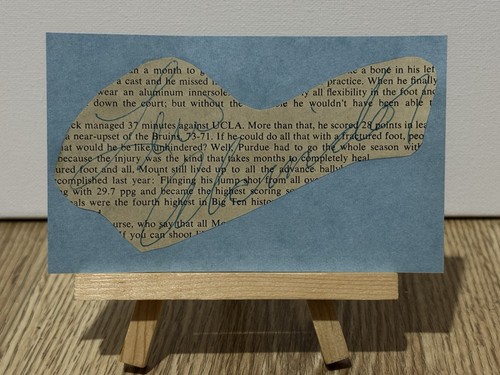 n a month to g e a bone in his left
a cast and he missed practice. When he finally
wear an aluminum innersole y all flexibility in the foot and
down the court; but without the he wouldn't have been able t
ck managed 37 minutes against UCLA. More than that, he scored 28 points in lea
a near-upset of the Bruins, 73-71. If he could do all that with a fractured foot, peo
hat would he be like unhindered? Well, Purdue had to go the whole season with
because the injury was the kind that takes months to completely heal
ured foot and all, Mount still lived up to all the advance ballyh
complished last year: Flinging his jump-shot from all over
g with 29.7 ppg and became the highest scoring so
als were the fourth highest in Big Ten histo
urse, who say that all Mo
If you can shoot li